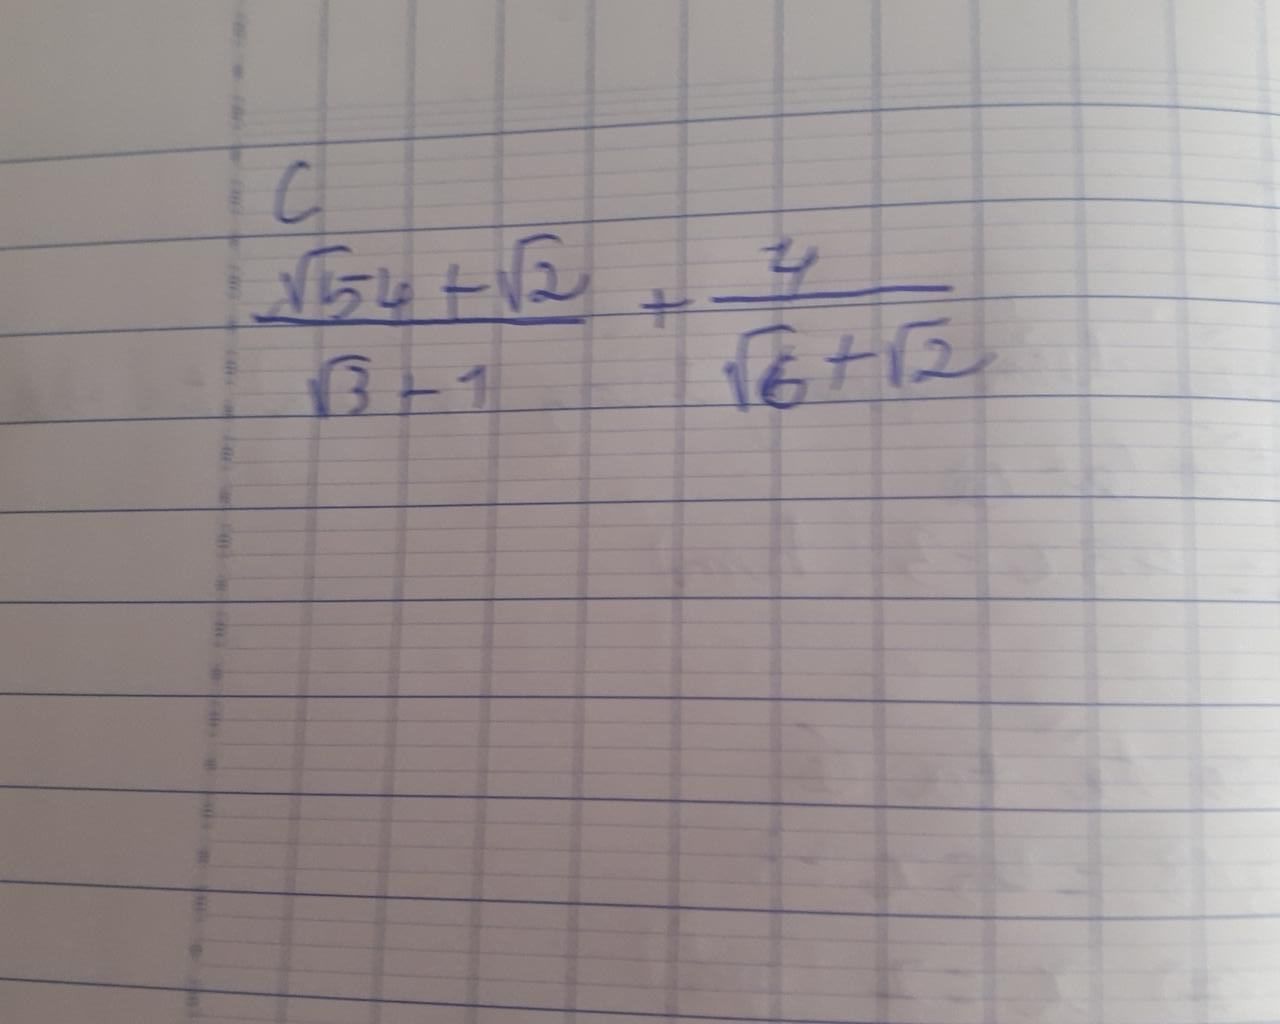 C
(√54 + √2)/(√3 - 1) + 4/(√6 + √2)